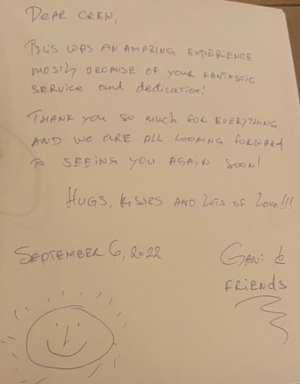 DEAR CREW,
THIS WAS AN AMAZING EXPERIENCE
MOSTLY BECAUSE OF YOUR FANTASTIC
SERVICE and DEDICATION!
THANK YOU SO MUCH FOR EVERYTHING
AND WE ARE ALL LOOKING FORWARD
TO SEEING YOU AGAIN SOON!
HUGS, KISSES AND LOTS OF LOVE!!!
SEPTEMBER 6, 2022
&
FRIENDS